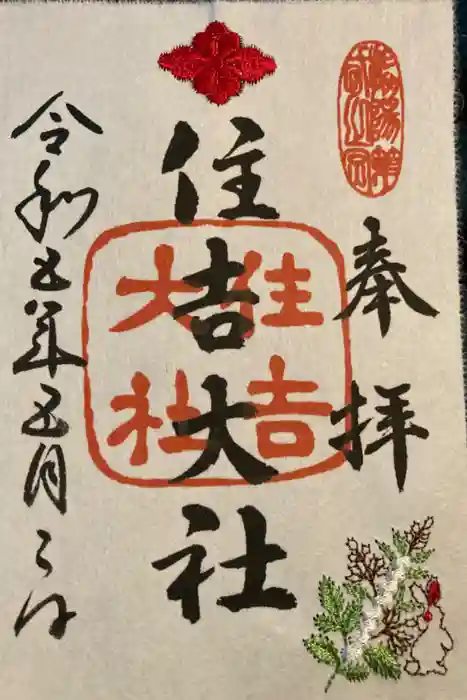 攝陽第
壹之宮
奉拝
住吉大社
住吉
大社
令和五年五月二日